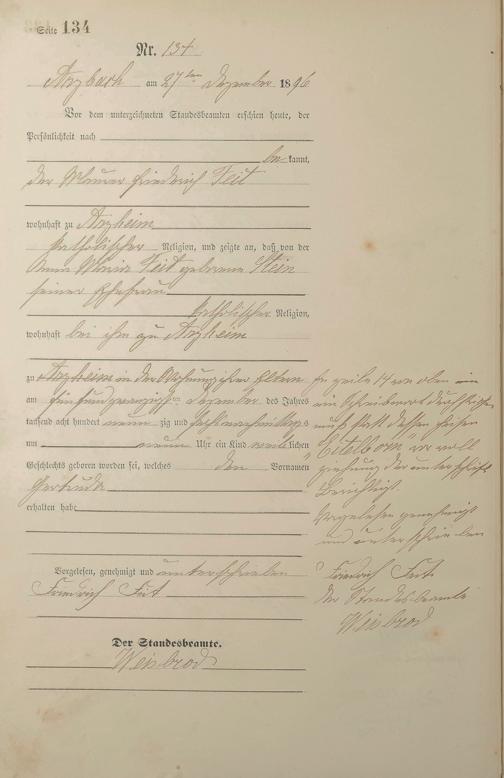 Seite 134
Nr. 134
Arzbach am 27ten Dezember 1896
Vor dem unterzeichneten Standesbeamten erschien heute, der
Persönlichkeit nach
bekannt,
der Maurer Friedrich Feit
wohnhaft zu Arzheim
katholischer Religion, und zeigte an, daß von der
Anna Maria Feit geborene Stein
seiner Ehefrau
katholischer Religion,
wohnhaft bei ihm zu Arzheim
zu Arzheim in der Wohnung ihrer Eltern
am fünfundzwanzigsten Dezember des Jahres
tausend acht hundert neunzig und sechs
um neun Uhr ein Kind weiblichen
Geschlechts geboren worden sei, welches den Vornamen
Gertruda
erhalten habe
Vorgelesen, genehmigt und unterschrieben
Friedrich Feit
Der Standesbeamte.
Weisbrod
In Zeile 14 von oben ein
ein Schreibwort durchstrichen
muß statt dessen heißen
"Eitelborn" vor voll
ziehung der Unterschrift
Berichtigt.
Vorgelesen genehmigt
und unterschrieben
Friedrich Feit
Der Standesbeamte
Weisbrod